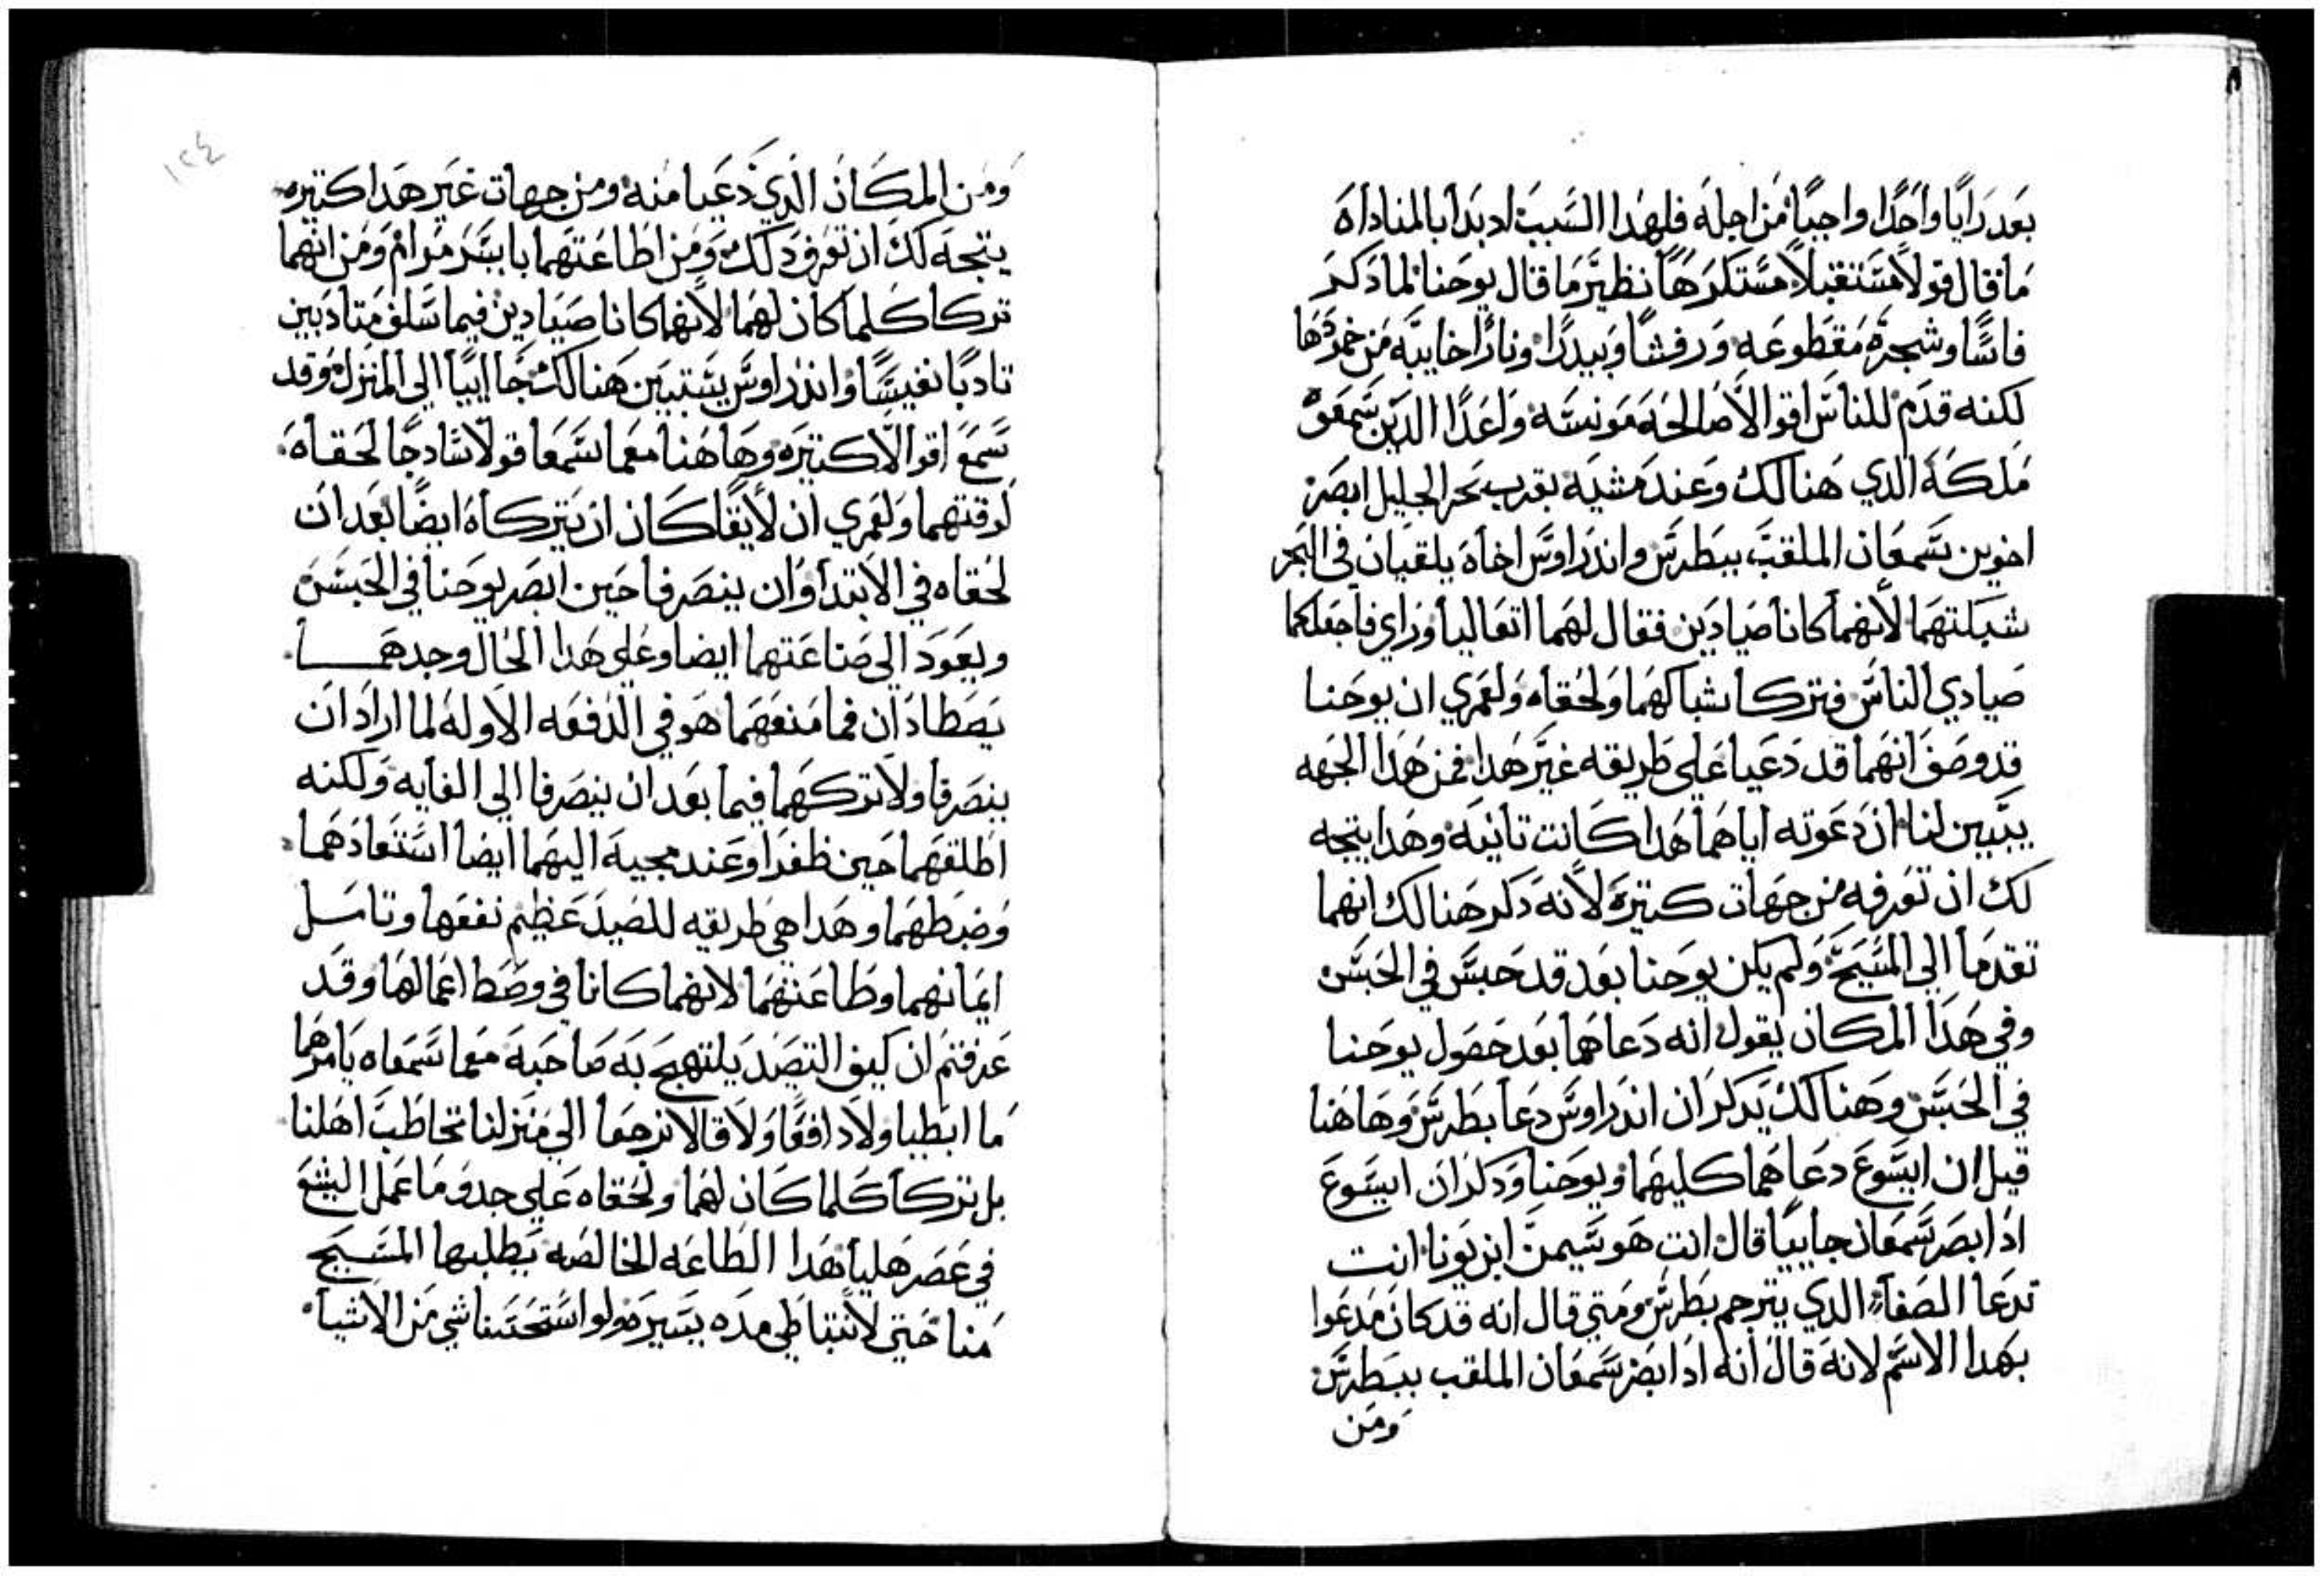 بعد رايًا واحدًا واجبًا من اجله فلهدا السبب اد بدا بالمناداه
ما قال قولاً مستتقبلاً مستكرهًا نظير ما قال يوحنا لما دكر
فاسًا وشجره مقطوعه ورفشًا وبيدرًا ونارًا خايبه من خمودها
لكنه قدم للناس اقوالاً صالحه مونسه واعدًا الدين سمعوه
ملكه الدي هنالك وعند مشيه بقرب بحر الجليل ابصر
اخوين سمعان الملقب ببطرس واندراوس اخاه يلقيان في البحر
شبكتهما لانهما كانا صيادين فقال لهما اتعاليا وراي فاجعلكما
صيادي الناس فتركا شباكهما ولحقاه ولعمري ان يوحنا
قد وصف انهما قد دعيا على طريقه غير هدا فمن هدا الجهه
يتبين لنا ان دعوته اياهما هدا كانت تانيه وهدا يتجه
لك ان تعرفه من جهات كتيره لانه دكر هنالك انهما
تقدما الي المسيح ولم يكن يوحنا بعد قد حبس في الحبس
وفي هدا المكان يقول انه دعاهما بعد حصول يوحنا
في الحبس وهنالك يدكر ان اندراوس دعا بطرس وها هنا
قيل ان ايسوع دعاهما كليهما ويوحنا ودكر ان ايسوع
اد ابصر سمعان جاييًا قال انت هو سيمن ابن يونا انت
تدعا الصفا الدي يترجم بطرس ومتي قال انه قد كان مدعوا
بهدا الاسم لانه قال انه اد ابصر سمعان الملقب ببطرس
ومن
١٢٤
ومن المكان الدي دعيا منه ومن جهات غير هدا كتيره
يتجه لك ان تعرف دلك ومن اطاعتهما بايسر مرام ومن انهما
تركا كلما كان لهما لانهما كانا صيادين فيما سلف متادبين
تادبًا نفيسًا واندراوس يستبين هنالك جاايًا الي المنزل وقد
سمع اقوالاً كتيره وها هنا معما سمعا قولاً سادجًا لحقاه
لوقتهما ولعمري ان لايقًا كان ان يتركاه ايضًا بعد ان
لحقاه في الابتدا وان ينصرفا حين ابصر يوحنا في الحبس
ويعود الي صناعتهما ايضا وعلي هدا الحال وجدهما
يصطادان فما منعهما هو في الدفعه الاوله لما اراد ان
ينصرفا ولا تركهما فيما بعد ان ينصرفا الي الغايه ولكنه
اطلقهما حين ظفرا وعند مجيه اليهما ايضا استعادهما
وضبطهما وهدا هي طريقه للصيد عظيم نفعها وتامل
ايمانهما وطاعتهما لانهما كانا في وسط اعمالها وقد
عرفتم ان كيف التصيد يلتهج به صاحبه معما سمعاه يامرهما
ما ابطيا ولا دافعًا ولا قالا نرجعا الي منزلنا نخاطب اهلنا
بل تركا كلما كان لهما ولحقاه علي حدو ما عمل اليشع
في عصر هليا هدا الطاعه الخالصه يطلبها المسيح
منا حتي لا نتباطي مده يسيره ولو استحتنا شي من الاشيا